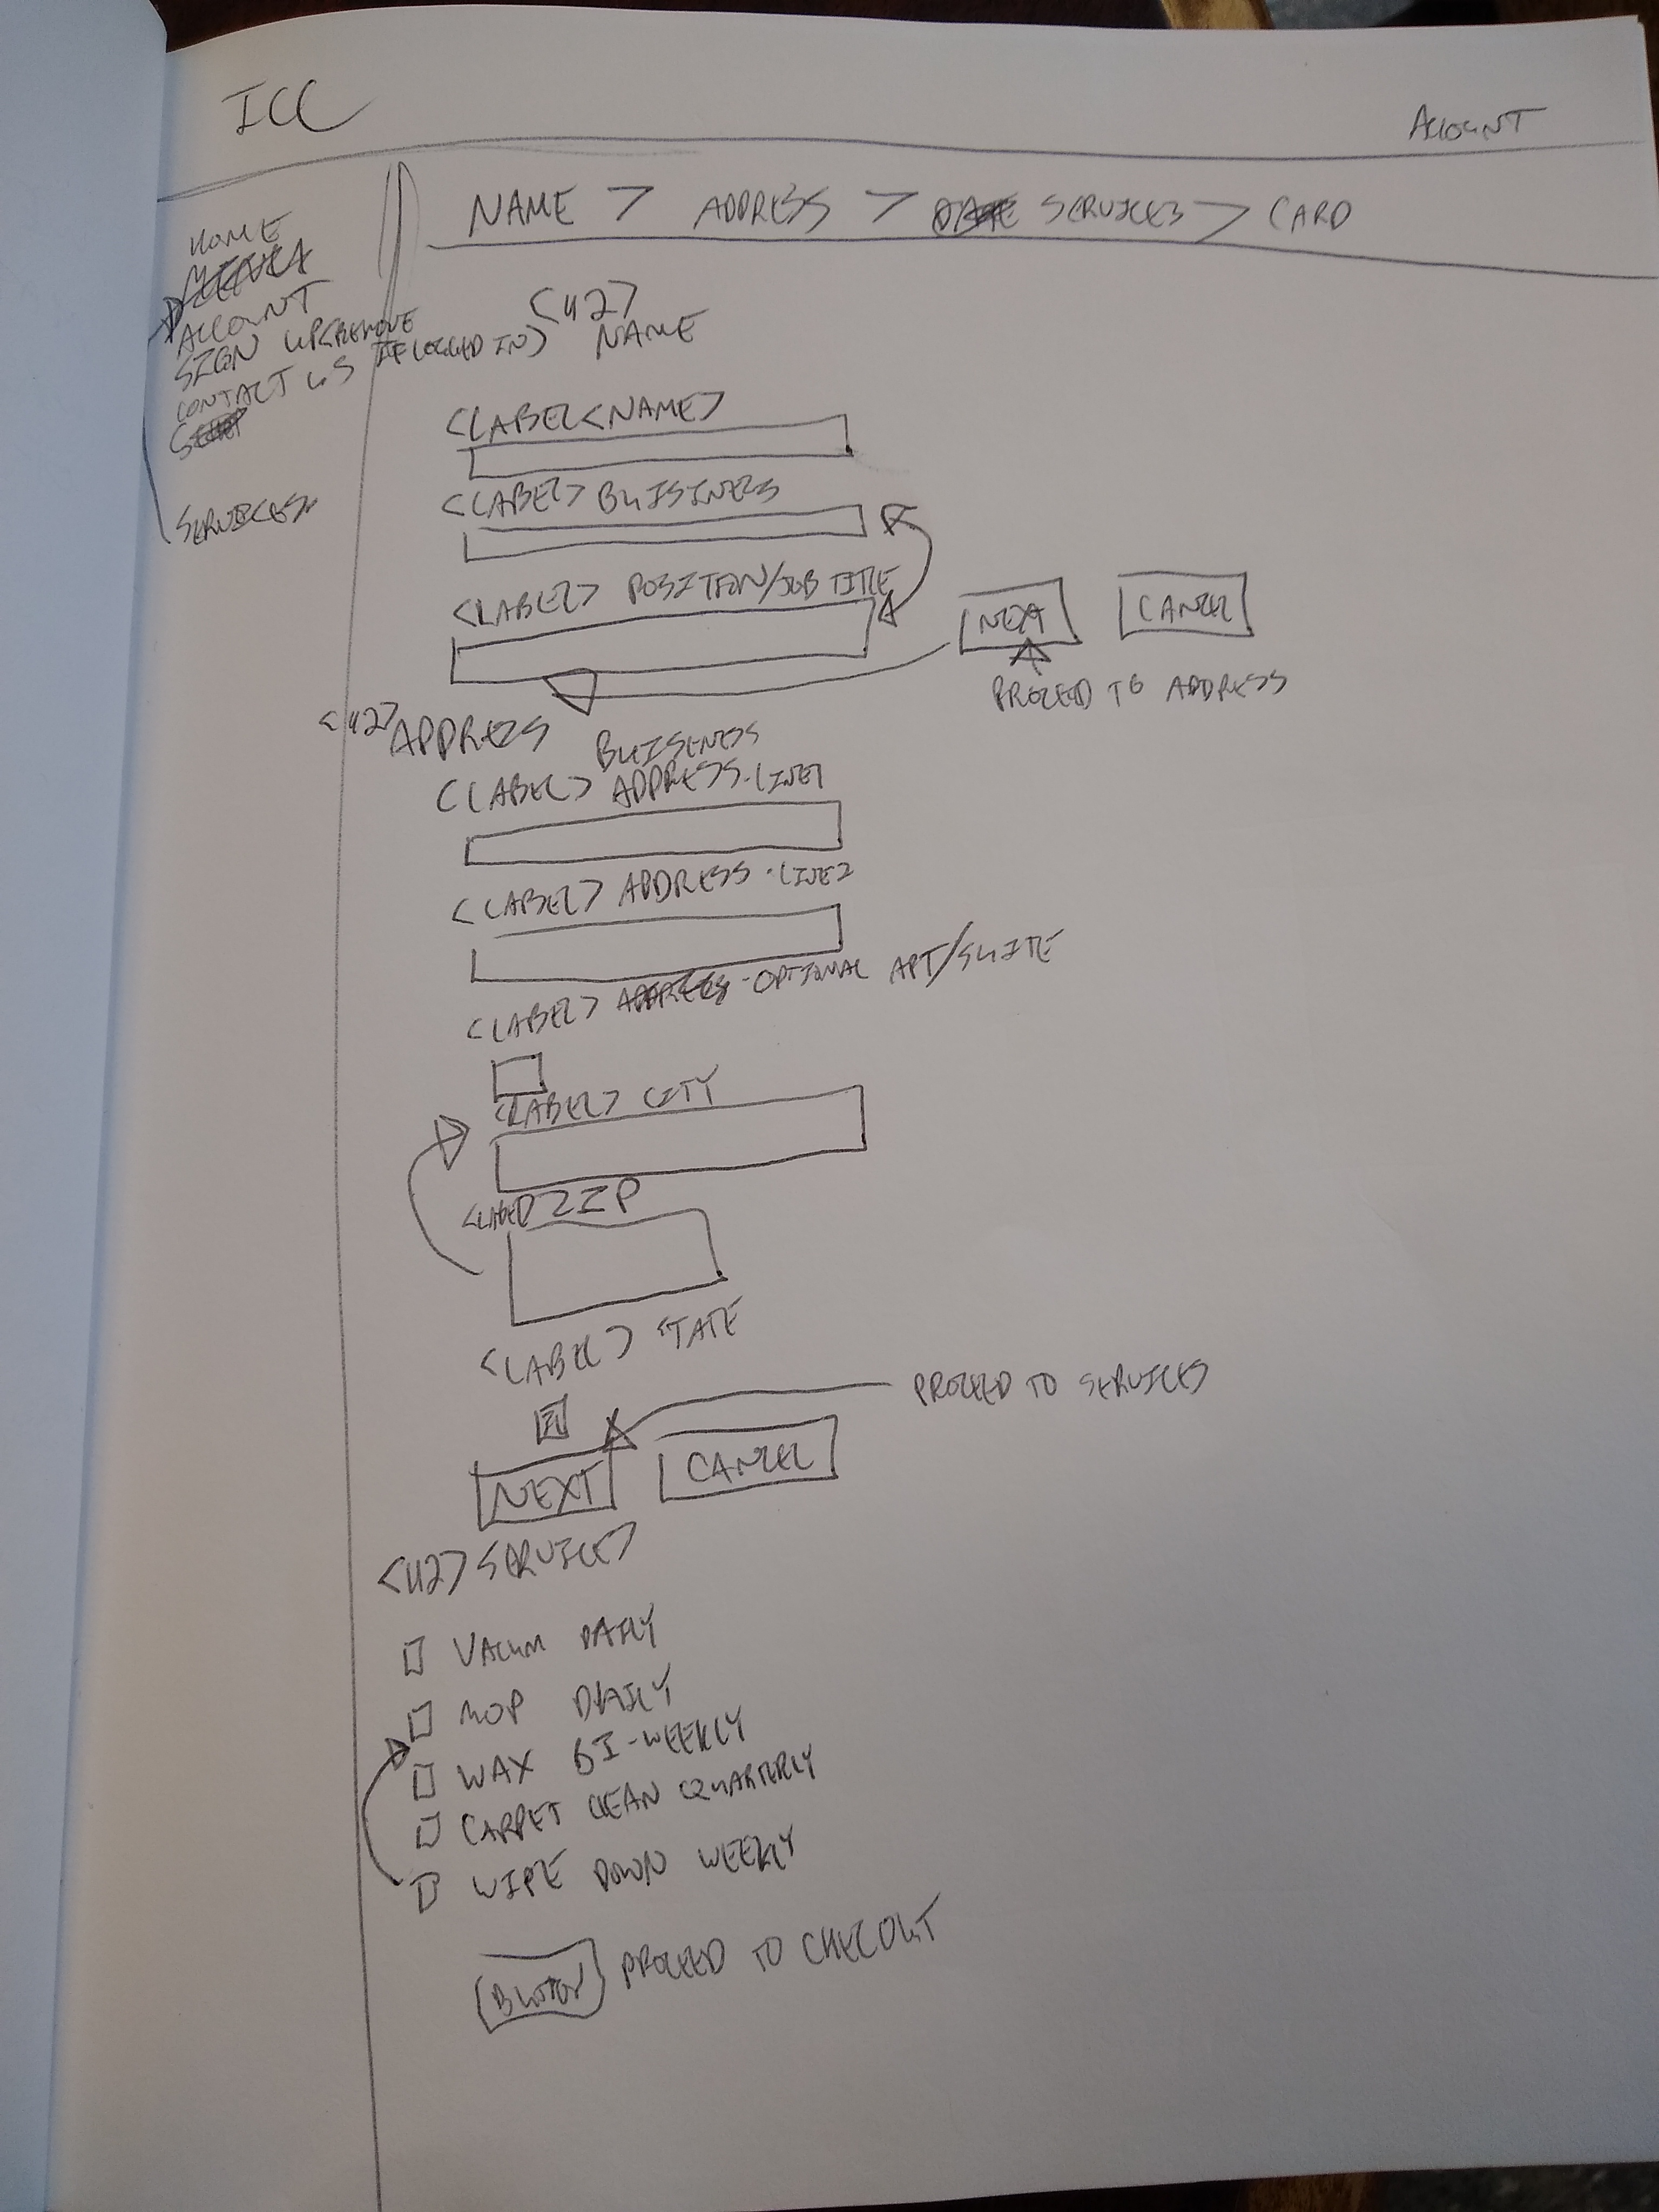 ICC
ACCOUNT
NAME > ADDRESS > SERVICES > CARD
HOME
ACCOUNT
SIGN UP (REMOVE
IF LOGGED IN)
CONTACT US
SERVICES
<H2>
NAME
<LABEL<NAME>
<LABEL> BUISINESS
<LABEL> POSITION/JOB TITLE
NEXT
CANCEL
PROCEED TO ADDRESS
<H2> ADDRESS
BUISENESS
<LABEL> ADDRESS-LINE1
<LABEL> ADDRESS-LINE2
<LABEL> ADDRESS-OPTIONAL APT/SUITE
<LABEL> CITY
<LABEL> ZIP
<LABEL> STATE
PROCEED TO SERVICES
NEXT
CANCEL
<H2> SERVICES
VACUM DAILY
MOP DAILY
WAX BI-WEEKLY
CARPET CLEAN QUARTERLY
WIPE DOWN WEEKLY
BUTTON PROCEED TO CHECOUT